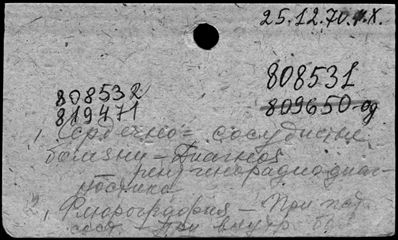 25.12.70. Х.
808532
808531
819471
809650-од
1, Сердечно-сосудистые
болезни - Диагноз
рентгенорадиодиаг-
ностика
2, Флюорография - При пат.
сост. - При внутр. бол.